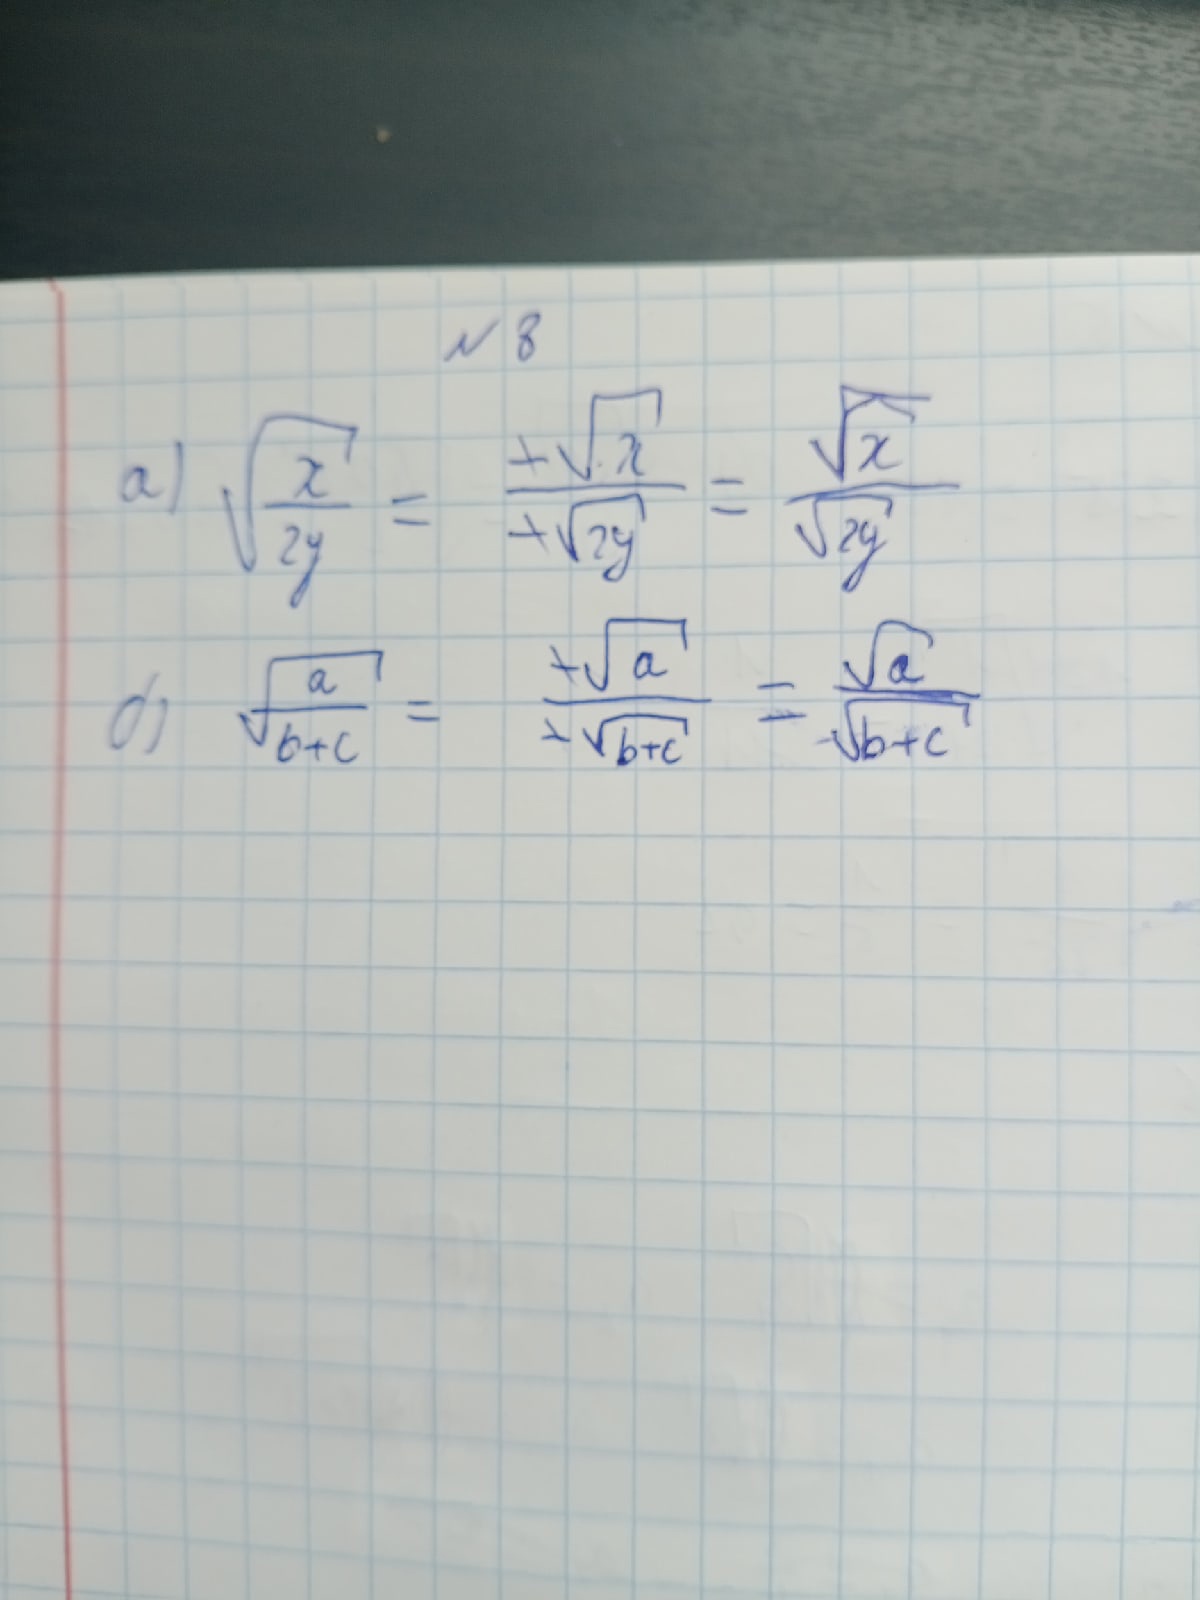 № 8
а) √(x/2y) = +√x/+√2y = √x/√2y
б) √(a/b+c) = +√a/+√b+c = √a/√b+c